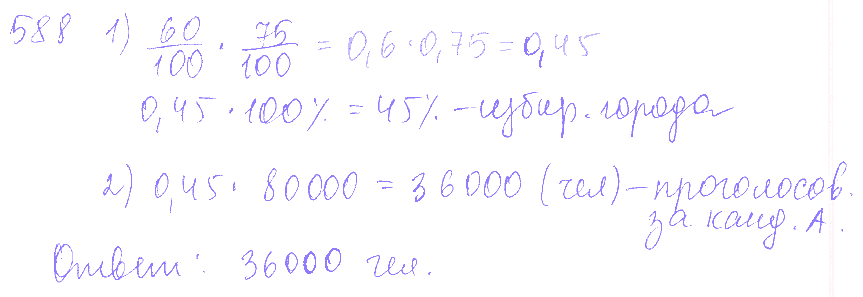 588 1) 60/100 · 75/100 = 0,6 · 0,75 = 0,45
0,45 · 100% = 45% – избир. города
2) 0,45 · 80000 = 36000 (чел) – проголосов.
за канд. А.
Ответ: 36000 чел.